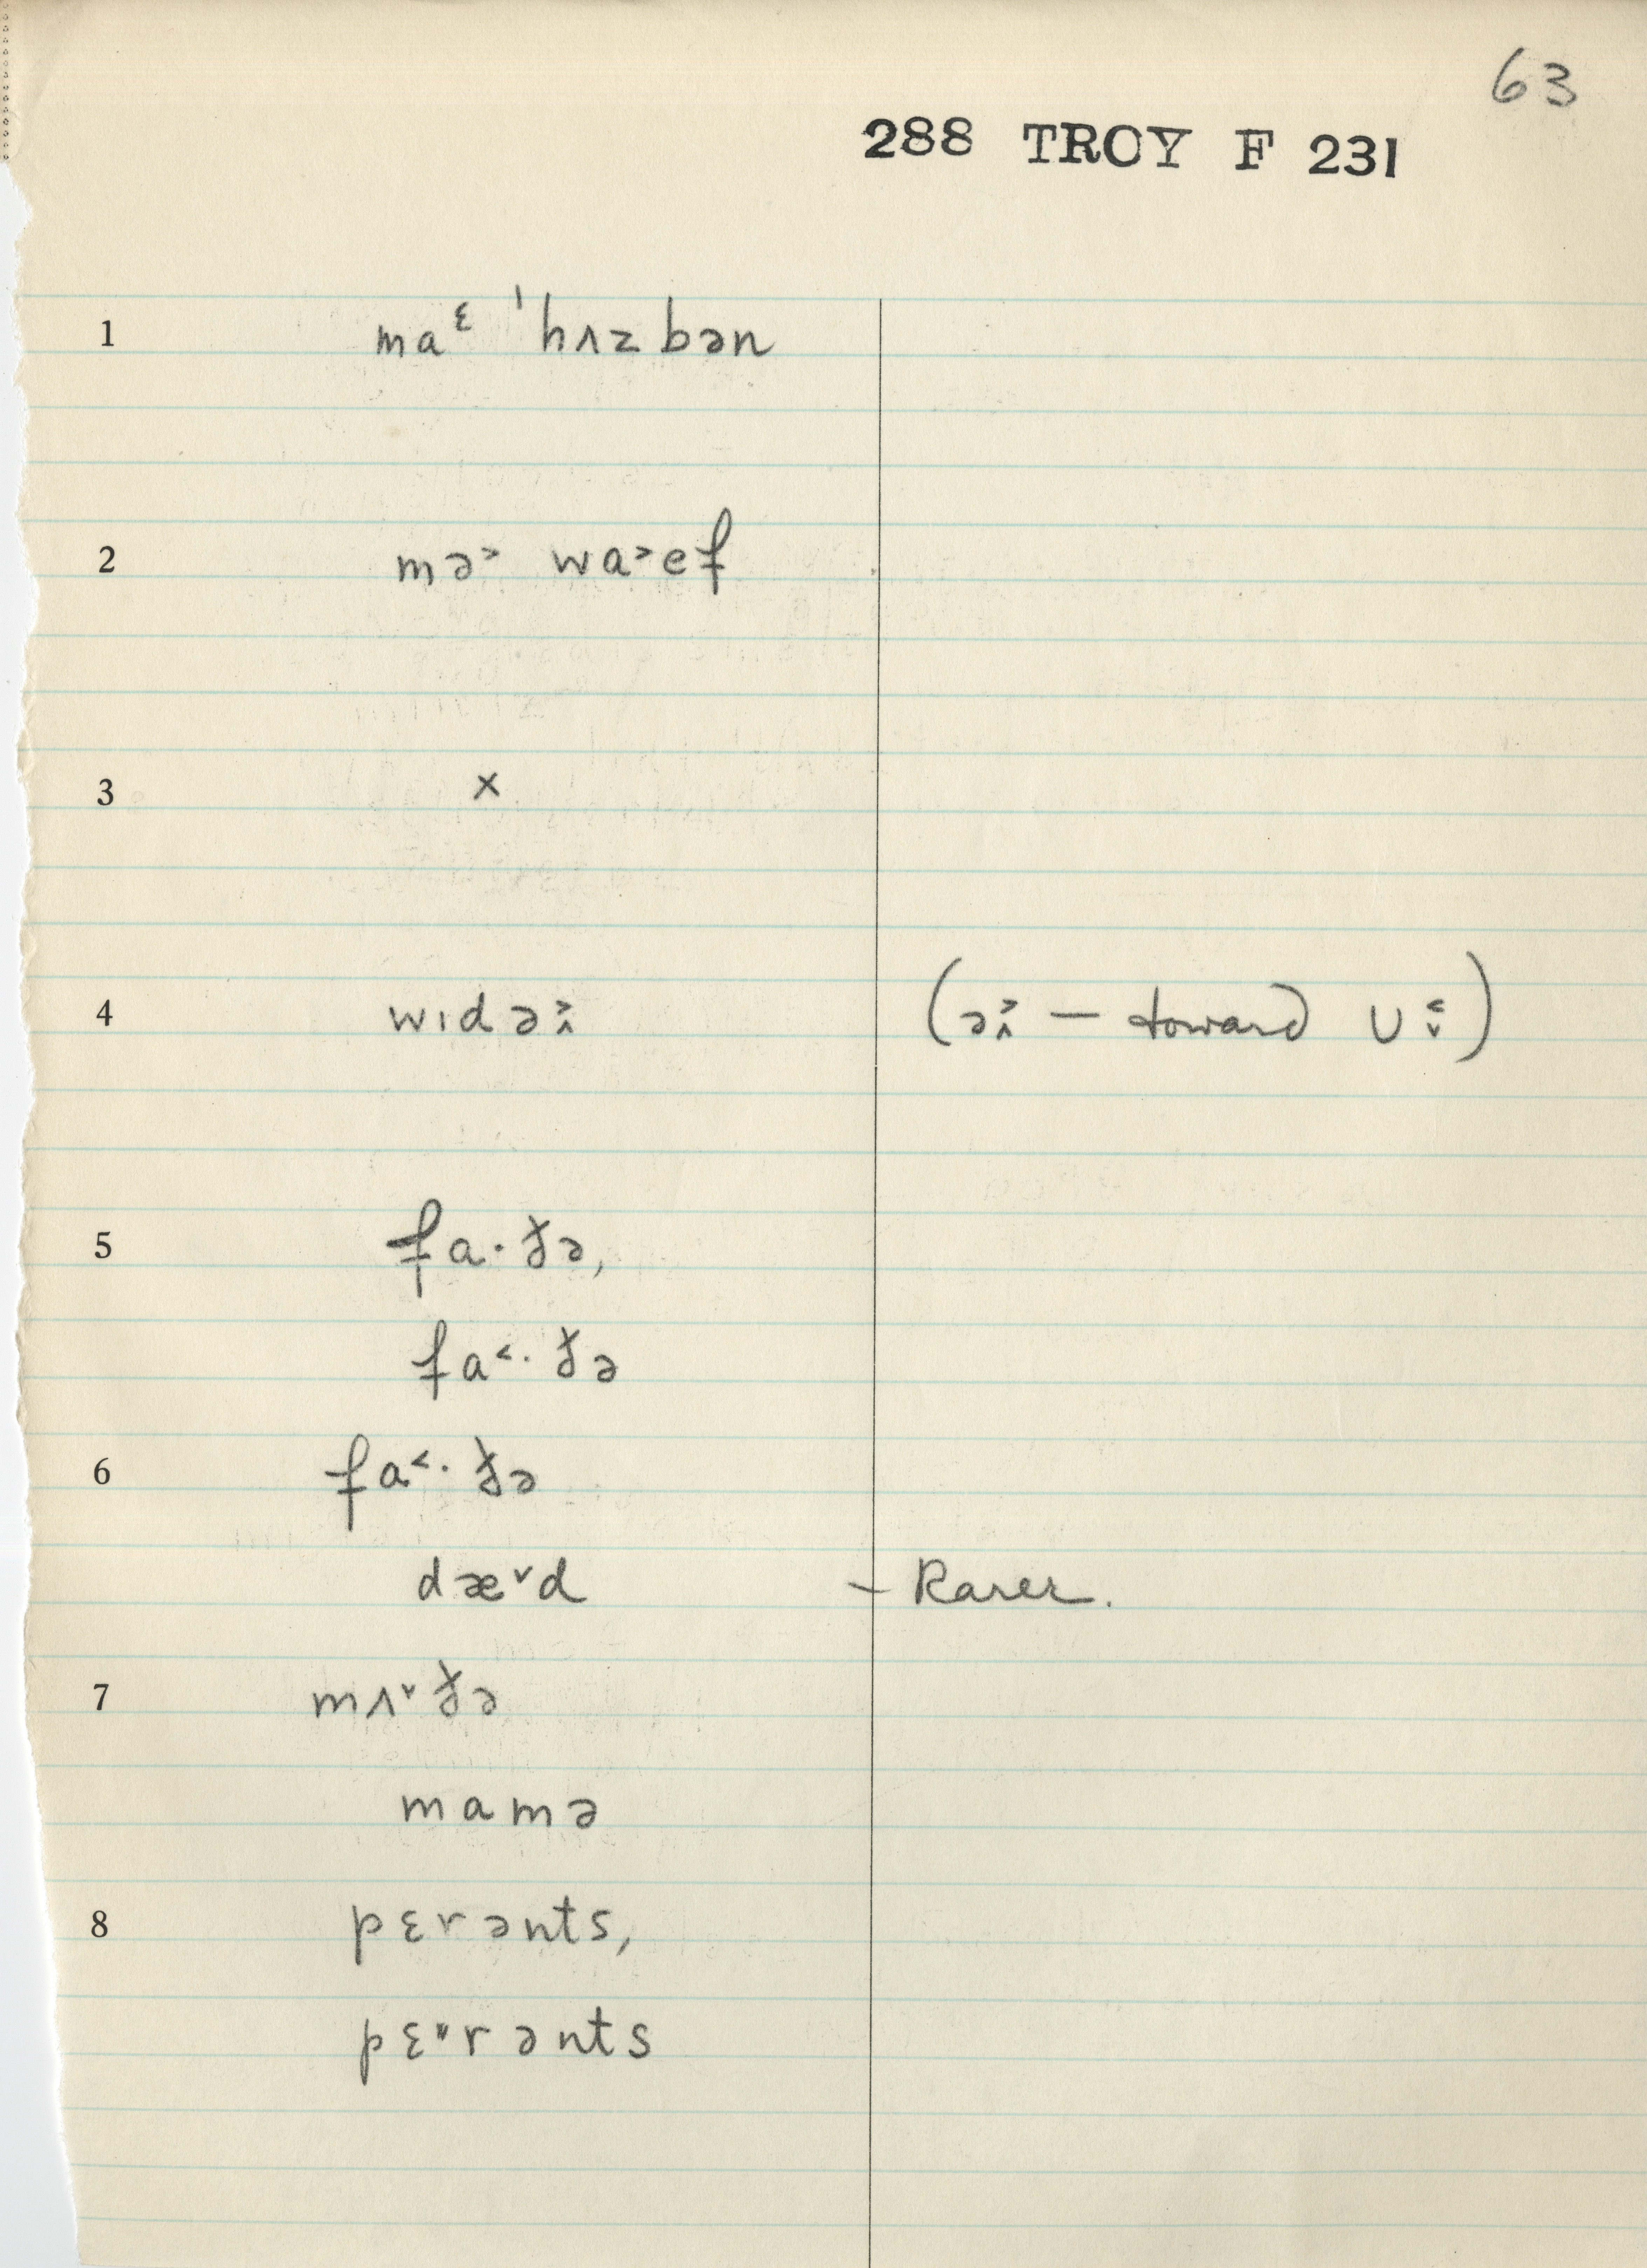 63
288 TROY F 231
1 maᵋ ˈhʌzbən
2 mə˃ wa˃ef
3 ×
4 wɪdə˄˃ (ə˄˃ — toward ʊ˅˂)
5 fa·ðə,
fa˂·ðə
6 fa˂·ðə
dæ˅d – Rarer.
7 mʌ˅ðə
mamə
8 pɛrənts,
pɛ˅rənts